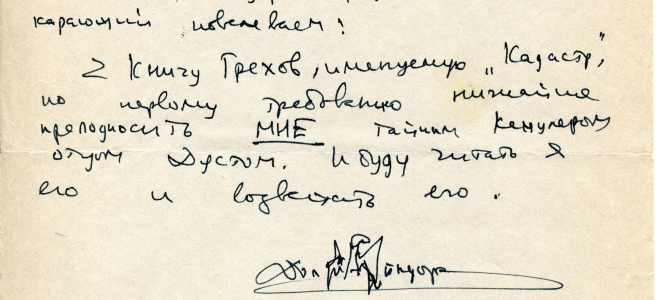 карающий повелеваем:
2 Книгу Грехов, именуемую „Кадастр“,
по первому требованию нижайше
преподносить МНЕ тайным Канцлером
отцом Дустом. И буду читать я
его и возвещать его.